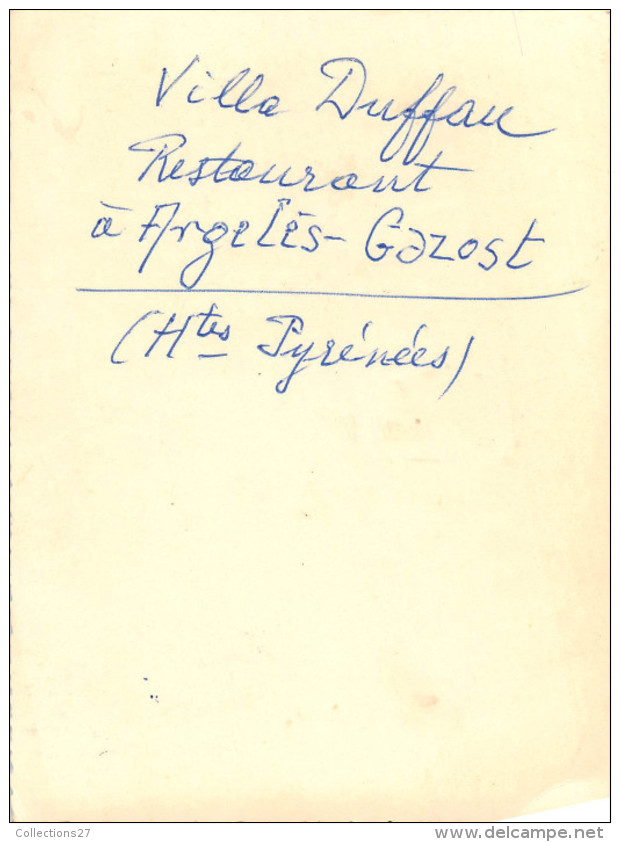 Villa Duffau
Restaurant
à Argelès-Gazost
(Htes Pyrénées)
Collections27
www.delcampe.net